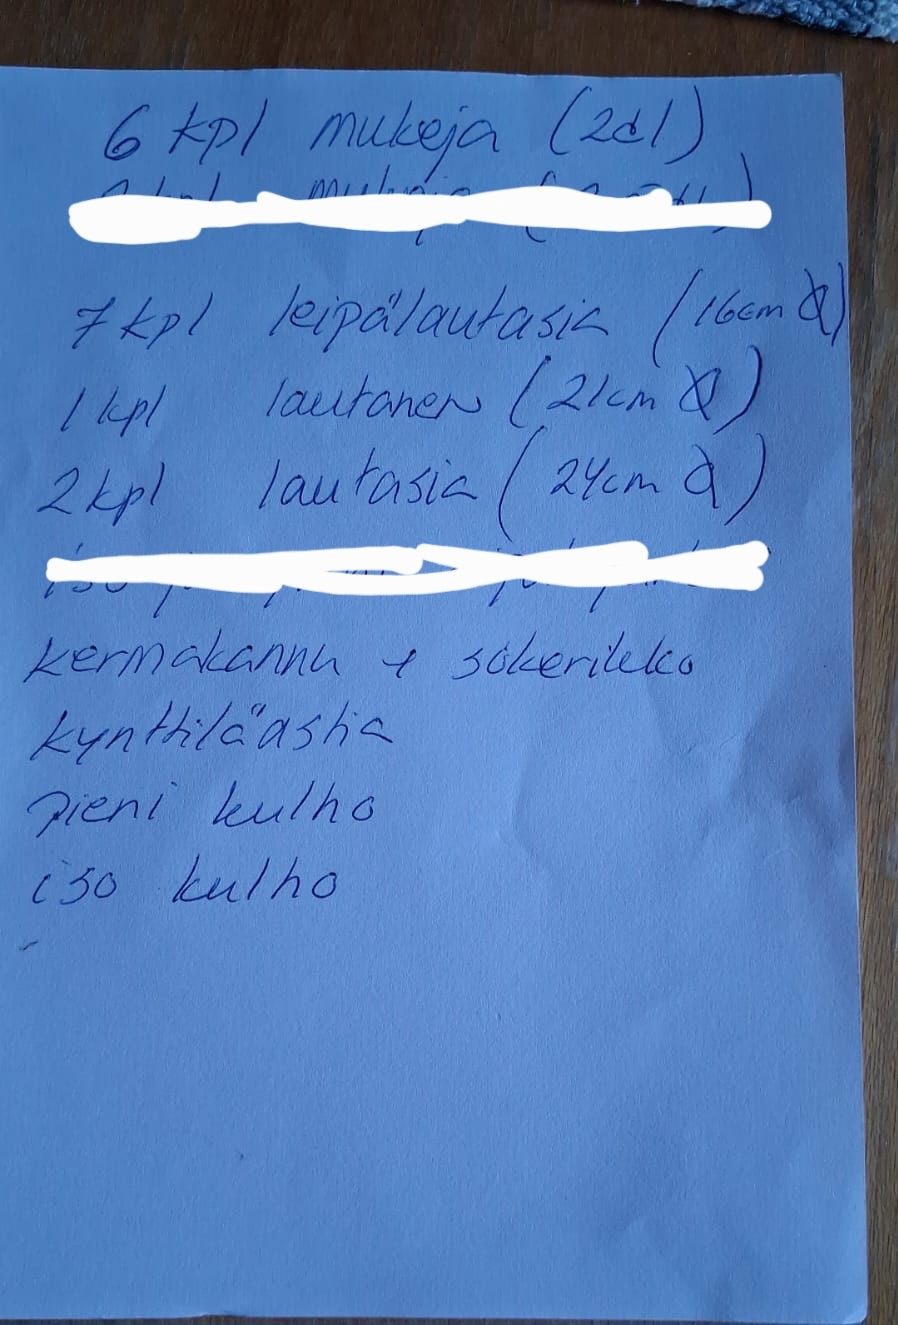 6 kpl mukeja (2dl)
7 kpl leipälautasia (16cm Ø)
1 kpl lautanen (21cm Ø)
2 kpl lautasia (24cm Ø)
kermakannu + sokerikko
kynttiläastia
pieni kulho
iso kulho